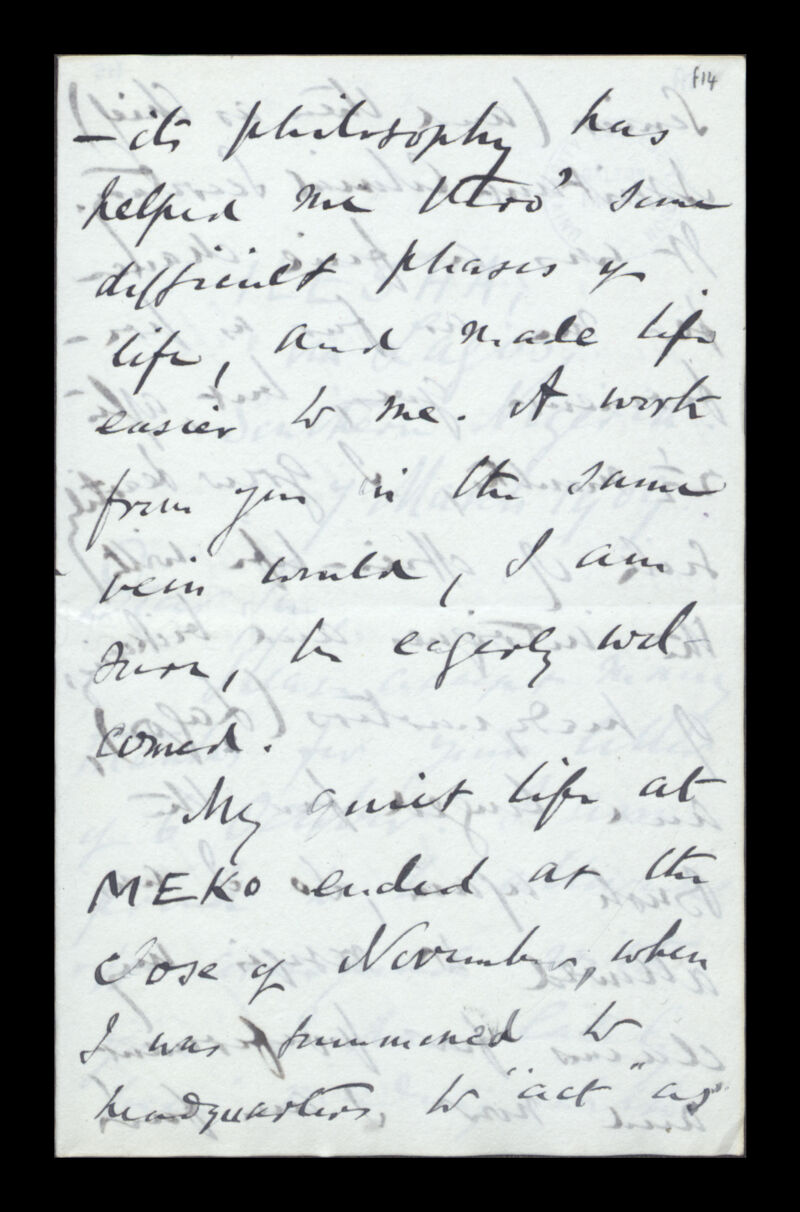 f14
– its philosophy has
helped me thro' some
difficult phases of
life, and made life
easier to me. A work
from you in the same
vein would, I am
sure, be eagerly wel-
comed.
My quiet life at
MEKO ended at the
close of November, when
I was summoned to
headquarters to "act" as